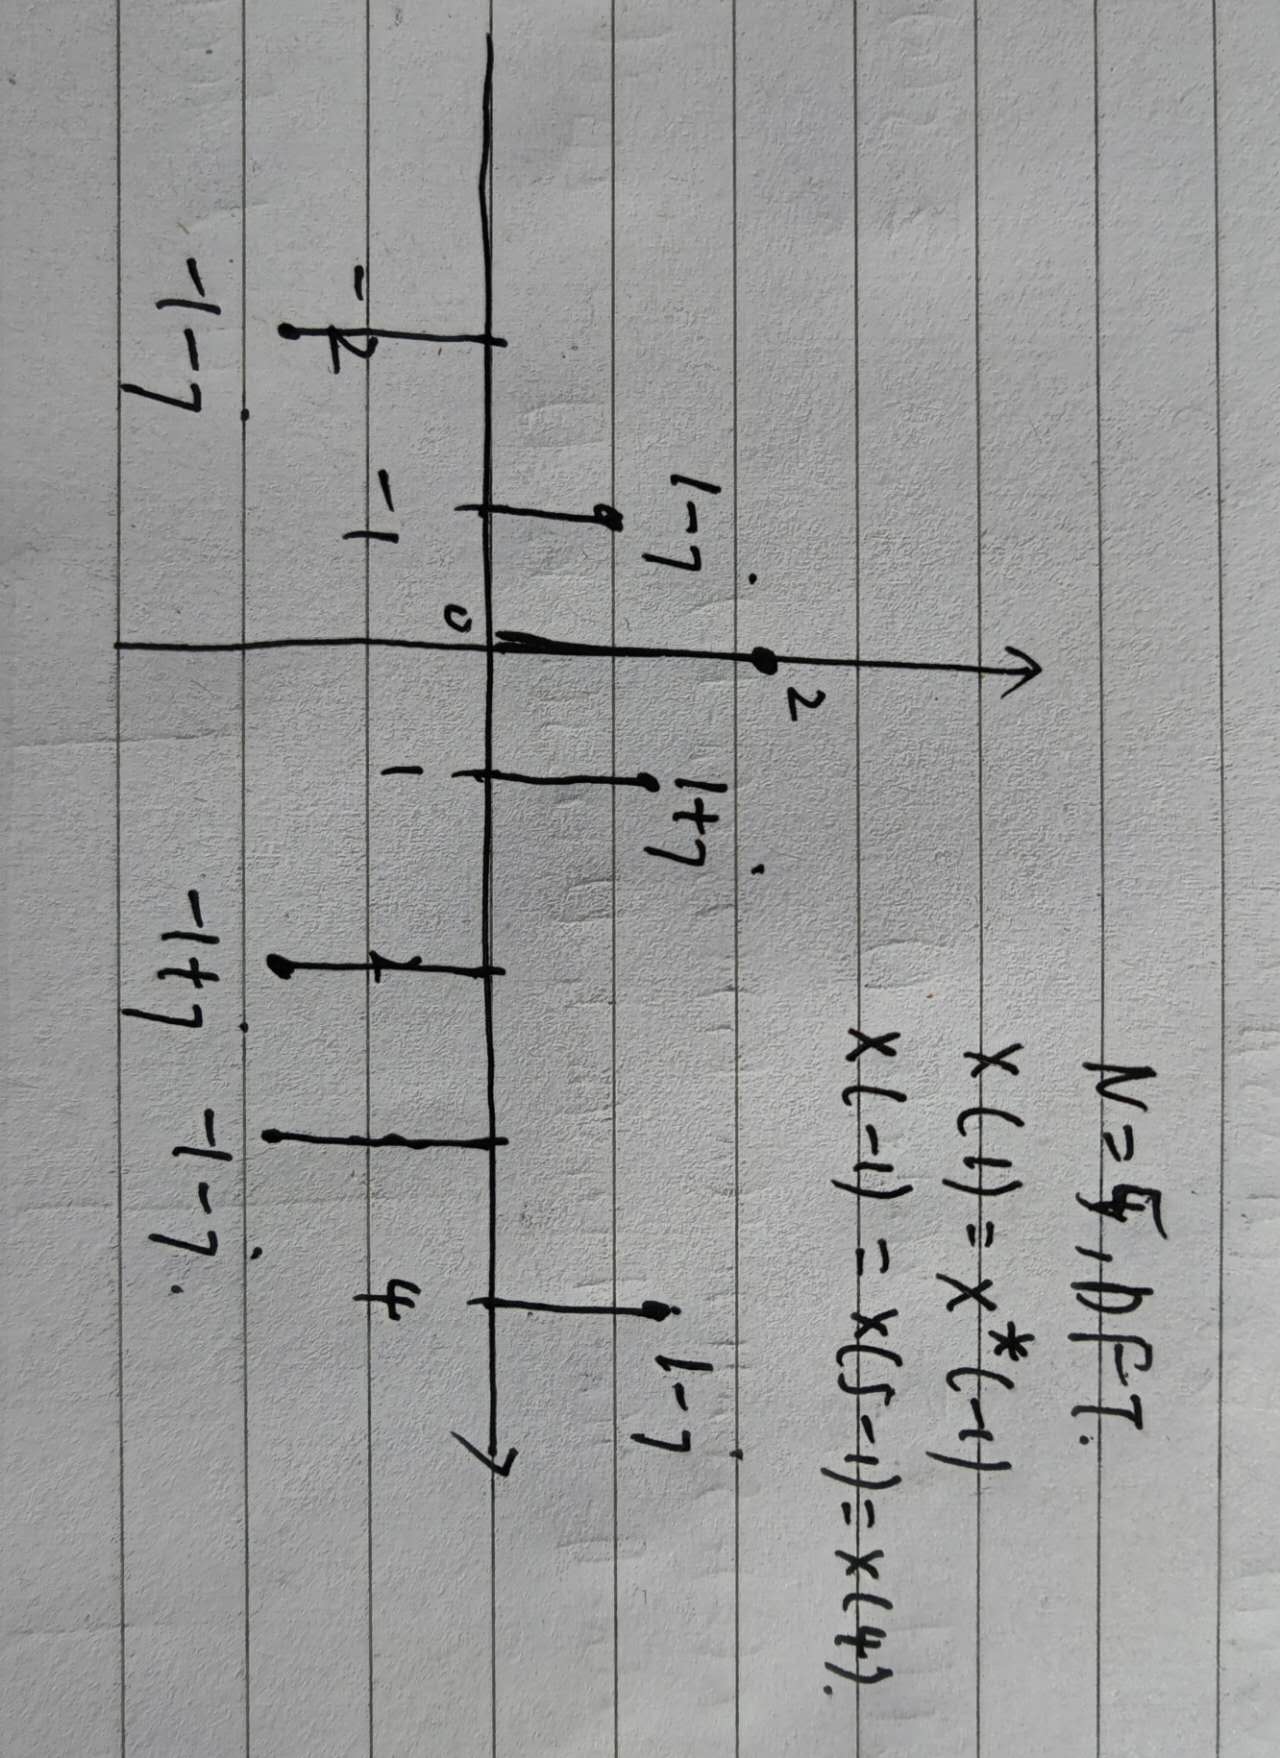 N=5, DFT.
X(1)=X*(-1)
X(-1) = X(5-1)=X(4).
2
1-j 1+j 1-j
0
-2 -1 1 2 4
-1-j -1+j -1-j.